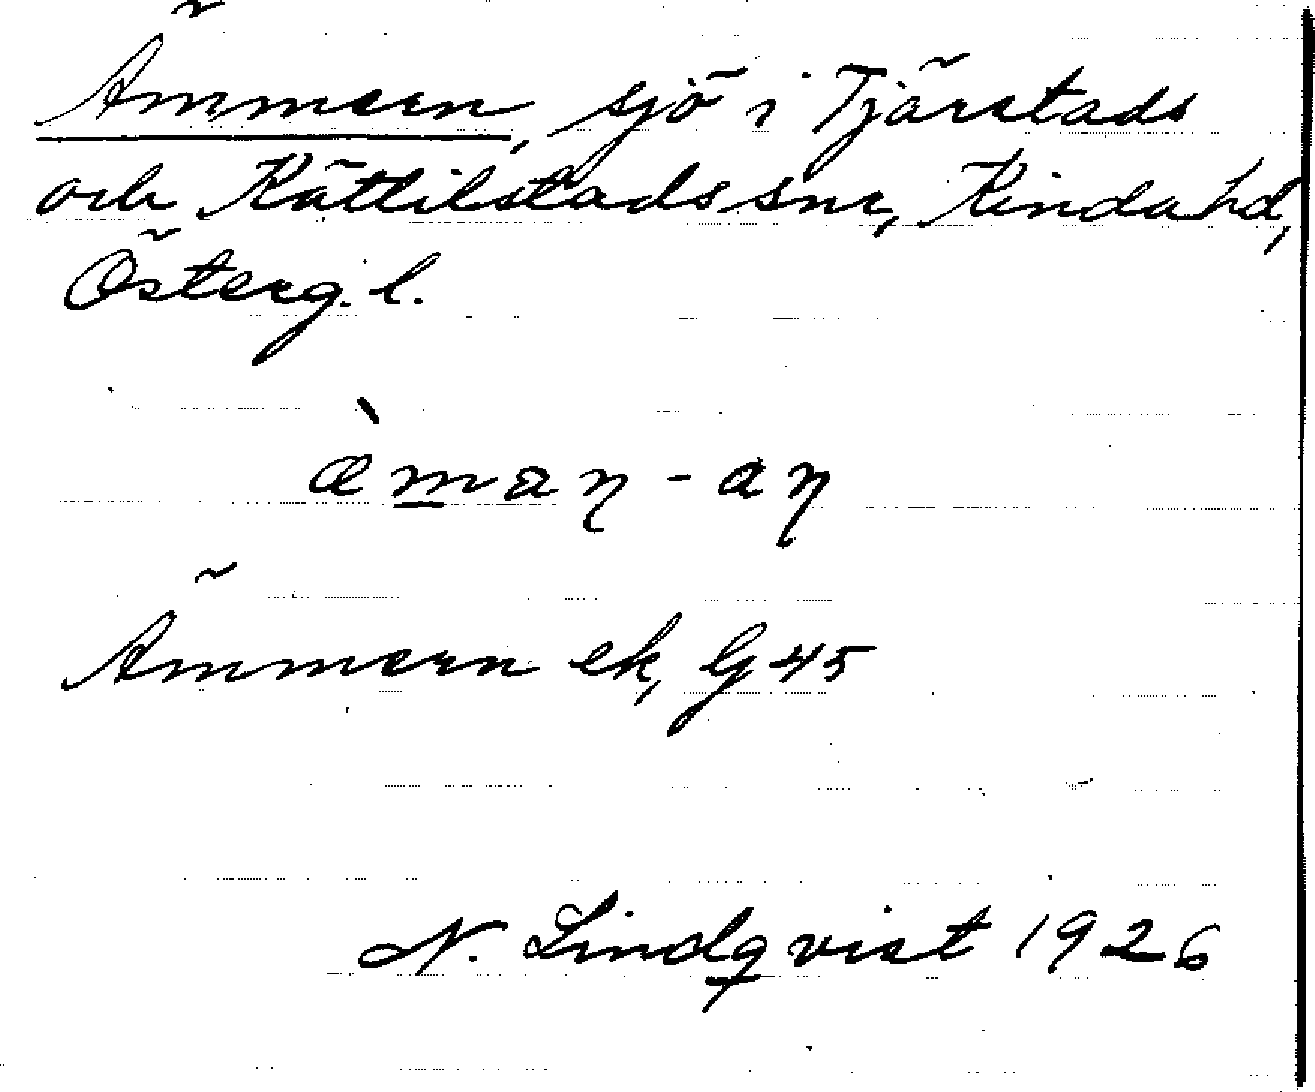 Ämmern, sjö i Tjärstads
och Kättilstads snr, Kinda hd,
Österg. l.
æ̀man - an
Ämmern ek, G 45
N. Lindqvist 1926